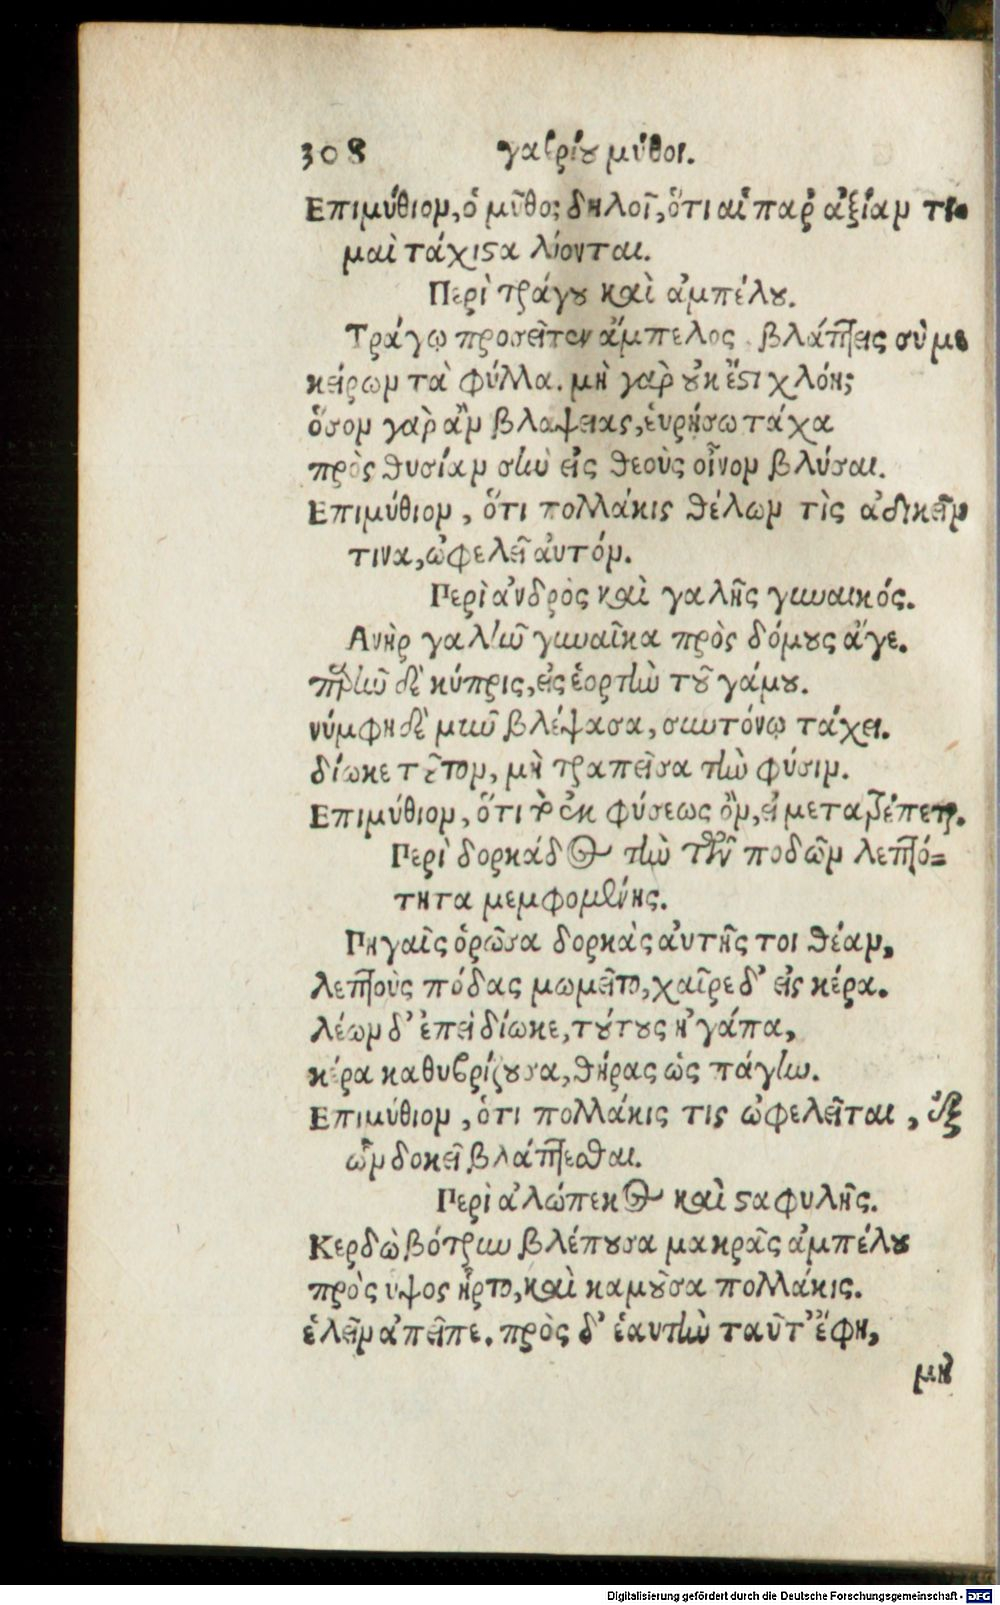 308 γαβρίου μύθοι.
Επιμύθιον, ὁ μῦθος δηλοῖ, ὅτι αἱ παρ' ἀξίαν τι-
μαὶ τάχιστα λύονται.
Περὶ τράγου καὶ ἀμπέλου.
Τράγῳ προσεῖπεν ἄμπελος. βλάπτεις σύ με
κείρων τὰ φύλλα. μὴ γὰρ οὐκ ἔστι χλόη;
ὅσον γὰρ ἂν βλαψειας, ἑυρήσω τάχα
πρὸς θυσίαν σὴν εἰς θεοὺς οἶνον βλύσαι.
Επιμύθιον, ὅτι πολλάκις θέλων τὶς ἀδικεῖν
τινα, ὠφελεῖ ἀυτόν.
Περὶ ἀνδρὸς καὶ γαλῆς γυναικός.
Ανὴρ γαλῆν γυναῖκα πρὸς δόμους ἄγε.
παρῆν δὲ κύπρις, εἰς ἑορτὴν τοῦ γάμου.
νύμφη δὲ μῦν βλέψασα, συντόνῳ τάχει.
δίωκε τοῦτον, μὴ τραπεῖσα τὴν φύσιν.
Επιμύθιον, ὅτι τὸ ἐκ φύσεως ὂν, οὐ μετατρέπεται.
Περὶ δορκάδος τὴν τῶν ποδῶν λεπτό=
τητα μεμφομένης.
Πηγαῖς ὁρῶσα δορκὰς ἀυτῆς τοι θέαν,
λεπτοὺς πόδας μωμεῖτο, χαῖρε δ' εἰς κέρα.
λέων δ' ἐπεὶ δίωκε, τούτους ἠγάπα,
κέρα καθυβρίζουσα, θήρας ὡς πάγην.
Επιμύθιον, ὁτι πολλάκις τις ὠφελεῖται, ἐξ
ὧν δοκεῖ βλάπτεσθαι.
Περὶ ἀλώπεκος καὶ σταφυλῆς.
Κερδὼ βότρυν βλέπουσα μακρᾶς ἀμπέλου
πρὸς υψος ἦρτο, καὶ καμοῦσα πολλάκις.
ἑλεῖν ἀπεῖπε. πρὸς δ' ἑαυτὴν ταῦτ' ἔφη,
μὴ
Digitalisierung gefördert durch die Deutsche Forschungsgemeinschaft - DFG